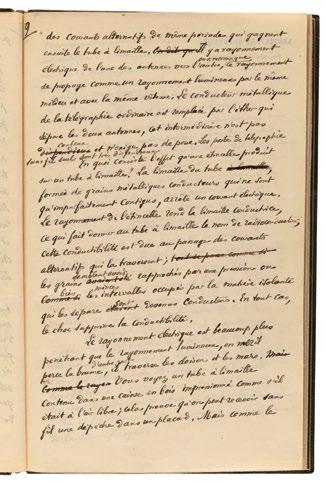 9
des courants alternatifs de même période qui gagnent
ensuite le tube à limaille. Il y a rayonnement
électrique de l'une des antennes vers l'autre, le rayonnement
se propage comme un rayonnement lumineux par le même
milieu et avec la même vitesse. Le conducteur métallique
de la télégraphie ordinaire est remplacé par l'éther qui
sépare les deux antennes, cet intermédiaire n'est pas
coûteux et n'exige pas de pose. Les postes de télégraphie
sans fil sont dont
En quoi consiste l'effet qu'une étincelle produit
sur un tube à limaille? La limaille du tube
formée de grains métalliques conducteurs qui ne sont
qu'imparfaitement contigus, arrête un courant électrique.
Le rayonnement de l'étincelle rend la limaille conductrice,
ce qui fait donner au tube à limaille le nom de radioconducteur;
cette conductibilité est due au passage des courants
alternatifs qui la traversent;
les grains semblent avoir rapprochés par une pression ou
bien les intervalles minces occupés par la matière isolante
qui les sépare sont devenus conducteurs. En tout cas,
le choc supprime la conductibilité.
Le rayonnement électrique est beaucoup plus
pénétrant que le rayonnement lumineux, en mer il
perce la brume, il traverse les cloisons et les murs. Mais
comme le rayon Vous voyez un tube à limaille
contenu dans une caisse en bois impressionné comme s'il
était à l'air libre; cela prouve qu'on peut recevoir sans
fil une dépêche dans un placard. Mais comme le